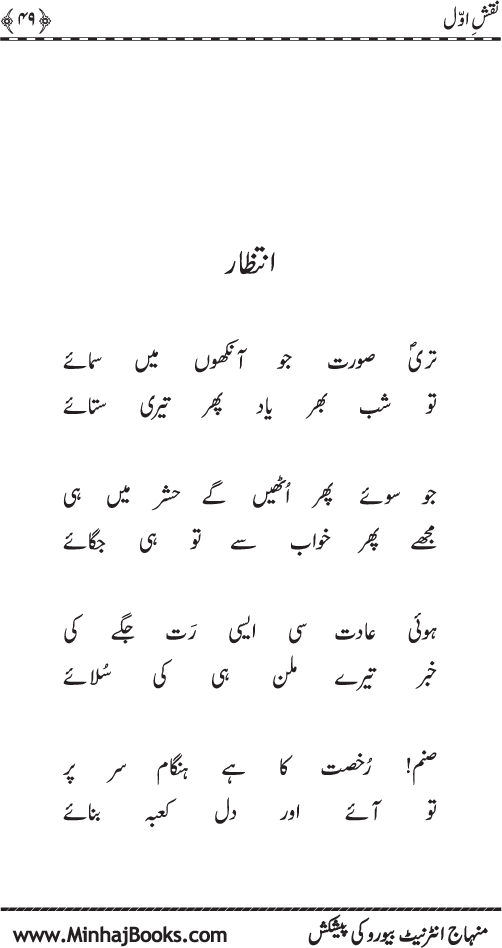 نقشِ اوّل
﴿۴۹﴾
انتظار
تریؐ صورت جو آنکھوں میں سمائے
تو شب بھر یاد پھر تیری ستائے
جو سوئے پھر اُٹھیں گے حشر میں ہی
مجھے پھر خواب سے تو ہی جگائے
ہوئی عادت سی ایسی رَت جگے کی
خبر تیرے ملن ہی کی سُلائے
صنم! رُخصت کا ہے ہنگام سر پر
تو آئے اور دل کعبہ بنائے
منہاج انٹرنیٹ بیورو کی پیشکش
www.MinhajBooks.com